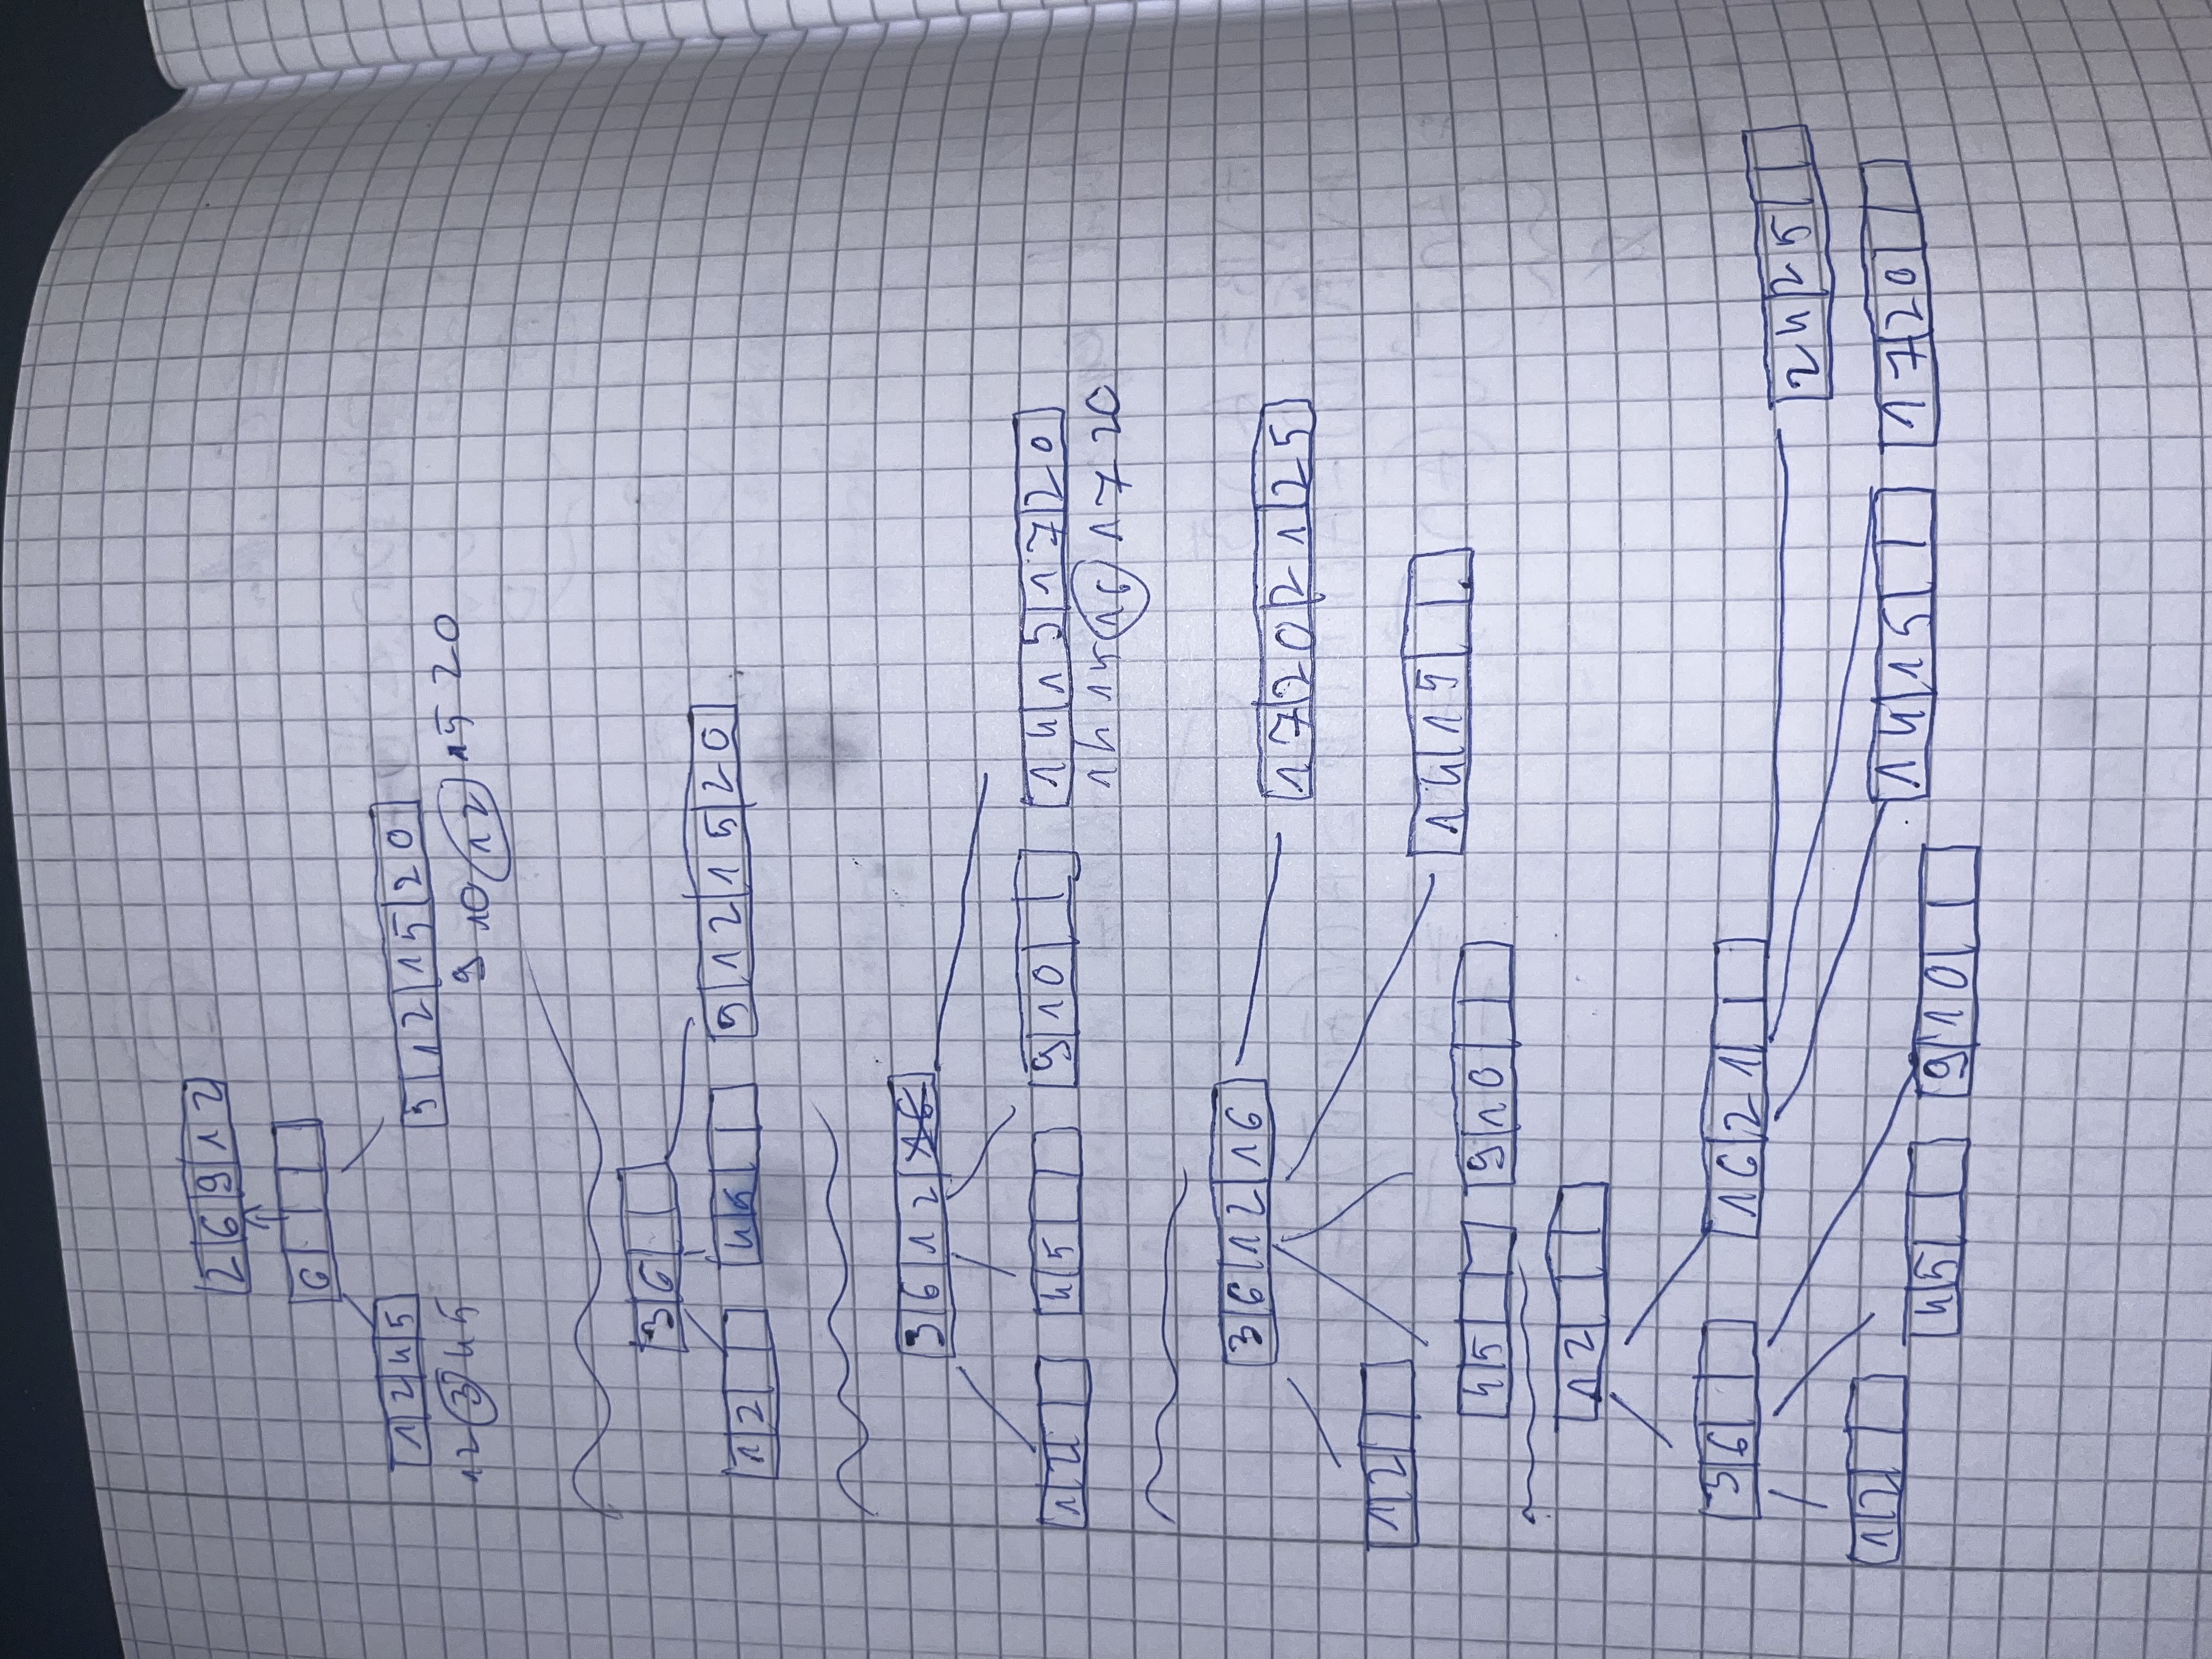 2 6 9 12
6
1 2 4 5
9 12 15 20
1 2 3 4 5
9 10 12 15 20
3 6
1 2 4 5 9 12 15 20
3 6 12 16
1 2 4 5 9 10 14 15 17 20
14 15 16 17 20
3 6 12 16
17 20 21 25
1 2
14 15
4 5 9 10
12
3 6 16 21
24 25
1 2
14 15 17 20
4 5 9 10